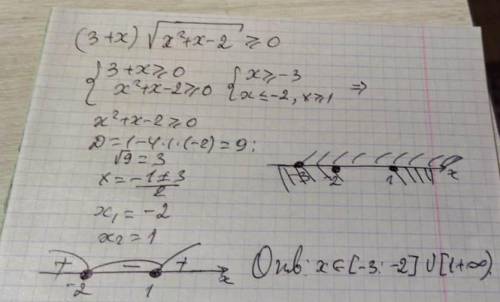 (3+x)√x²+x-2 ≥0
{3+x≥0 {x≥-3
x²+x-2≥0 x≤-2, x≥1 ⇒
x²+x-2≥0
D=1-4·1·(-2)=9;
√9=3
x=-1±3/2
x₁=-2
x₂=1
-3 -2 1 x
+ - +
-2 1 x
Отв: x∈[-3;-2]∪[1+∞).